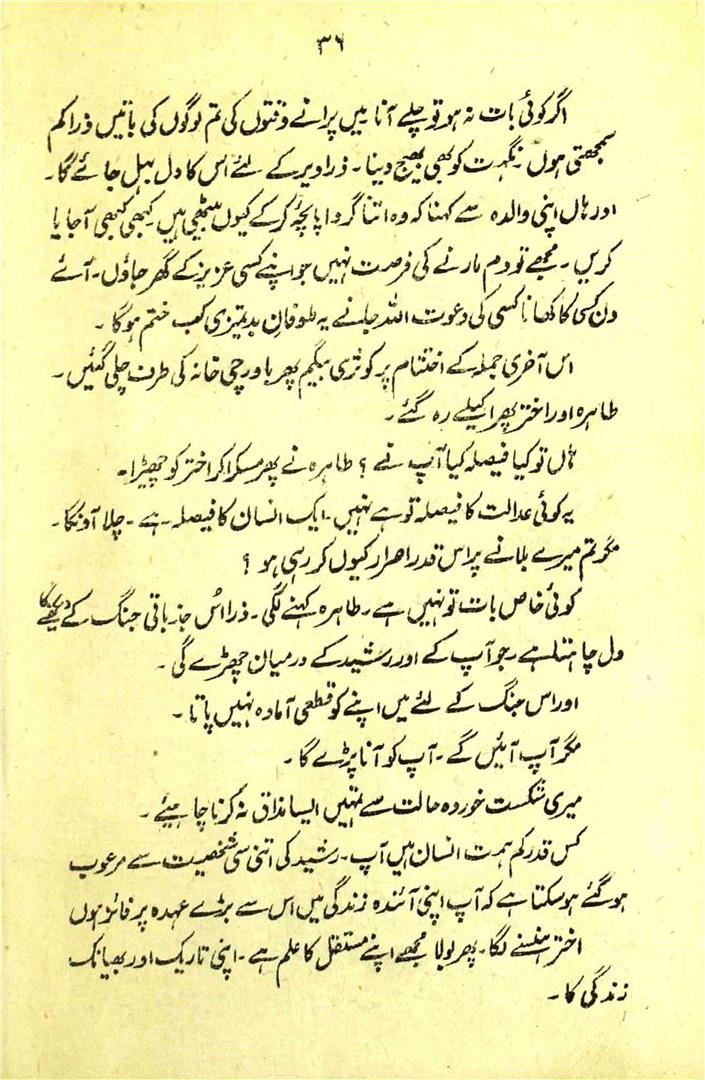 ۳۶
اگر کوئی بات نہ ہو تو چلے آنا میں پرانے وقتوں کی تم لوگوں کی باتیں ذرا کم
سمجھتی ہوں۔ نگہت کو بھی بھیج دینا۔ ذرا دیر کے لئے اس کا دل بہل جائے گا۔
اور ہاں اپنی والدہ سے کہنا کہ وہ اتنا گروا پانچہ کر کے کیوں بیٹھی ہیں کبھی کبھی آجایا
کریں۔ مجھے تو دم مارنے کی فرصت نہیں جو اپنے کسی عزیز کے گھر جاؤں۔ آئے
دن کسی کا کھانا کسی کی دعوت اللہ جانے یہ طوفانِ بدتمیزی کب ختم ہوگا۔
اس آخری جملہ کے اختتام پر کوثری بیگم پھر باورچی خانہ کی طرف چلی گئیں۔
طاہرہ اور اختر پھر اکیلے رہ گئے۔
ہاں تو کیا فیصلہ کیا آپ نے ؟ طاہرہ نے پھر مسکرا کر اختر کو چھیڑا۔
یہ کوئی عدالت کا فیصلہ تو ہے نہیں۔ ایک انسان کا فیصلہ ہے۔ چلا آونگا۔
مگر تم میرے بلانے پر اس قدر اصرار کیوں کر رہی ہو ؟
کوئی خاص بات تو نہیں ہے۔ طاہرہ کہنے لگی۔ ذرا اُس جذباتی جنگ کے دیکھنے کا
دل چاہتا ہے۔ جو آپ کے اور رشید کے درمیان چھڑے گی۔
اور اس جنگ کے لئے میں اپنے کو قطعی آمادہ نہیں پاتا۔
مگر آپ آئیں گے۔ آپ کو آنا پڑے گا۔
میری شکست خوردہ حالت سے تمہیں ایسا مذاق نہ کرنا چاہیئے۔
کس قدر کم ہمت انسان ہیں آپ۔ رشید کی اتنی سی شخصیت سے مرعوب
ہو گئے ہو سکتا ہے کہ آپ اپنی آئندہ زندگی میں اس سے بڑے عہدہ پر فائز ہوں
اختر ہنسنے لگا۔ پھر بولا مجھے اپنے مستقل کا علم ہے۔ اپنی تاریک اور بھیانک
زندگی کا۔